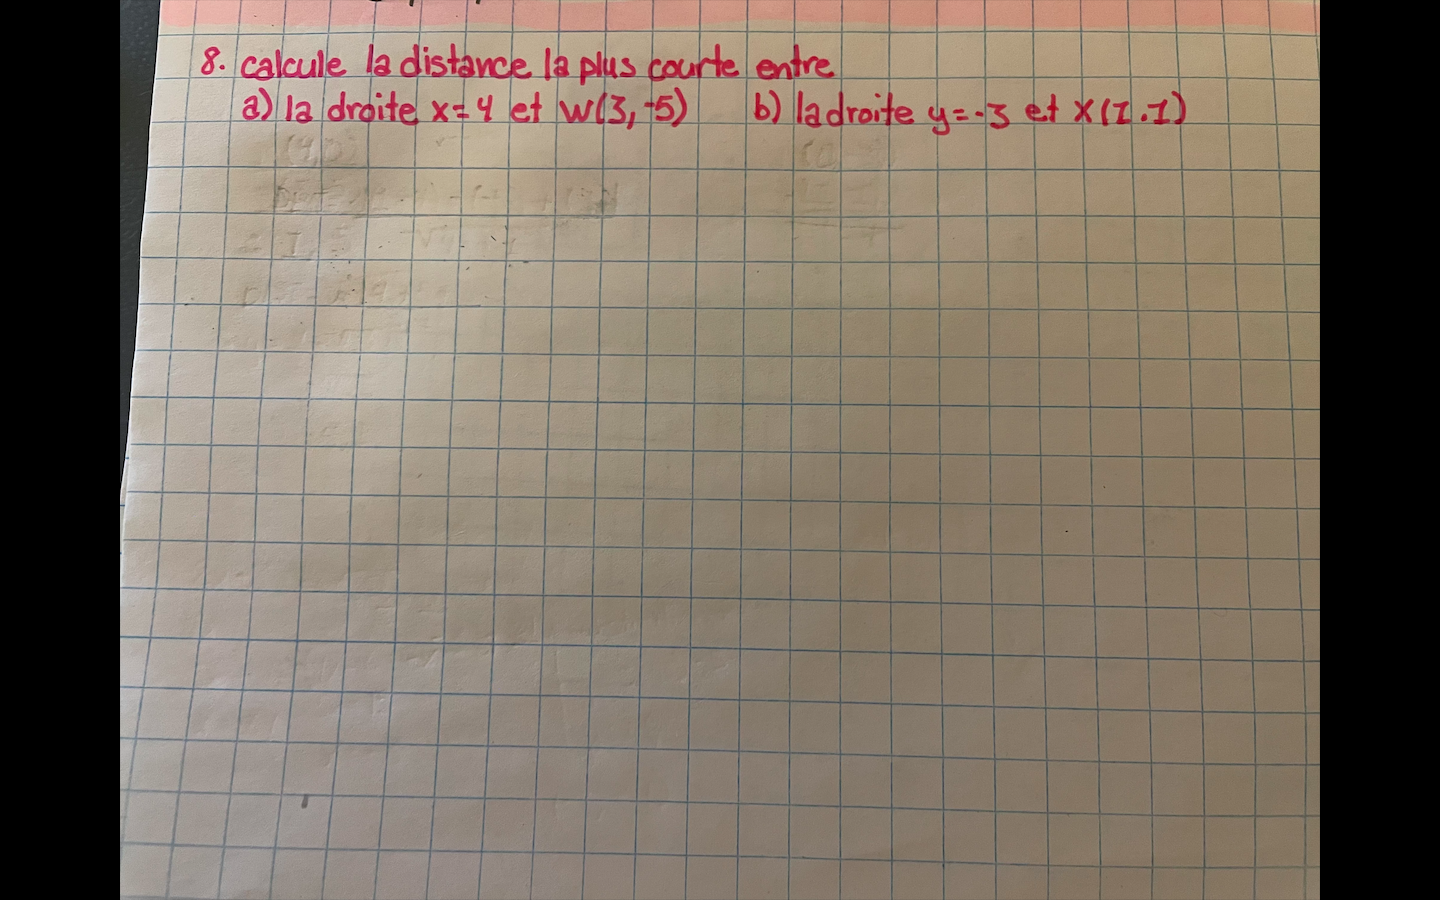 8. calcule la distance la plus courte entre
a) la droite x=4 et W(3,-5) b) la droite y=-3 et X(1.1)